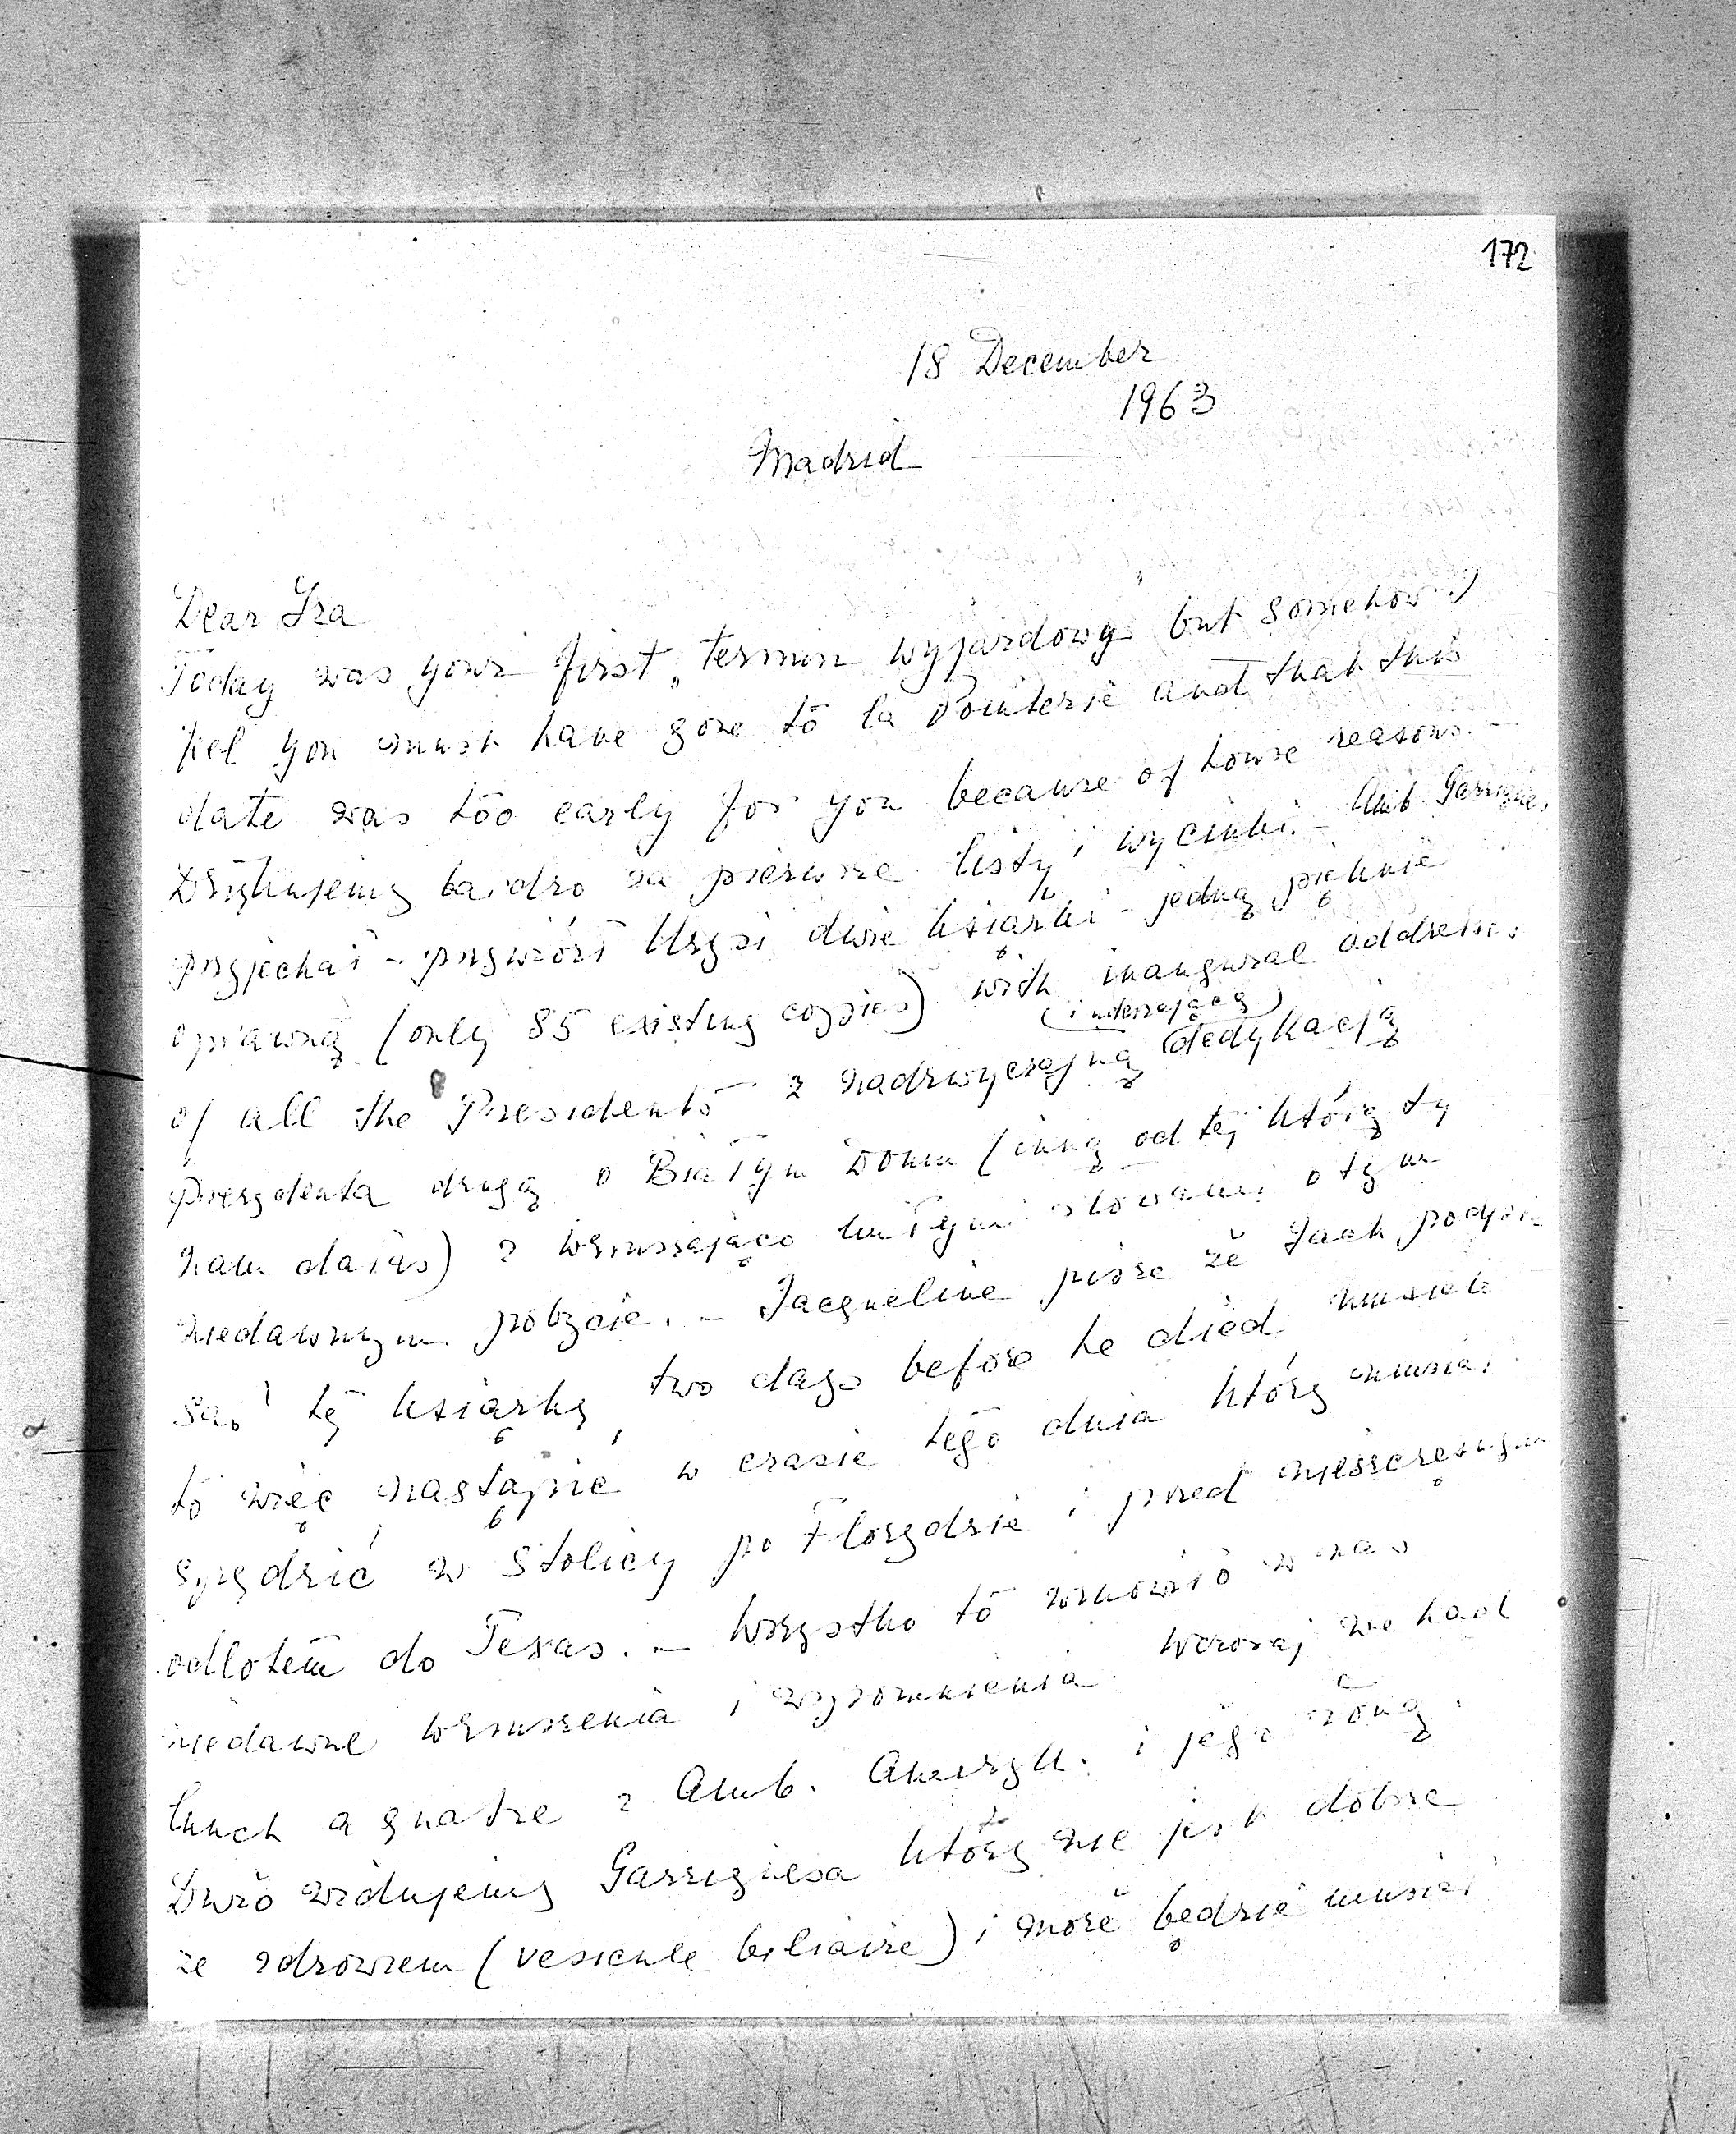 172
18 December
1963
Madrid
Dear Iza
Today was your first „termin wyjazdowy" but somehow I
feel you must have gone to la Pointerie and that this
date was too early for you because of house reasons. -
Dziękujemy bardzo za pierwsze listy i wycinki. - Amb. Garrigues
przyjechał - przywiózł Krysi dwie książki - jedną pięknie
oprawną (only 85 existing copies) with inaugural address.
of all the Presidents z nadzwyczajną (wzruszającą) dedykacją
Prezydenta drugą o Białym Domu (inną od tej którą ty
nam dałaś) z wzruszająco miłymi słowami o tym
niedawnym pobycie. - Jacqueline pisze że Jack podpi-
sał tę książkę two days before he died musiało
to więc nastąpić w czasie tego dnia który musiał
spędzić w stolicy po Florydzie i przed nieszczęsnym
odlotem do Texas. - Wszystko to wznowiło w nas
niedawne wzruszenia i wspomnienia. Wczoraj we had
lunch a quatre z Amb. Ameryk. i jego żoną.
Dziś widujemy Garriguesa który nie jest dobrze
ze zdrowiem (vesicule biliaire) i może będzie musiał